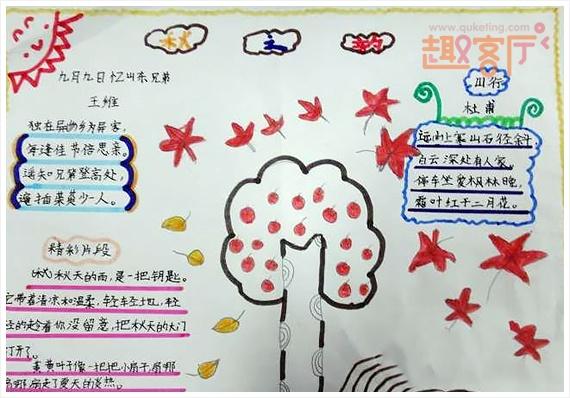 www.quketing.com
趣客厅
秋 之 韵
九月九日忆山东兄弟
王维
独在异乡为异客，
每逢佳节倍思亲。
遥知兄弟登高处，
遍插茱萸少一人。
山行
杜甫
远山上寒山石径斜，
白云深处有人家，
停车坐爱枫林晚，
霜叶红于二月花。
精彩片段
秋天的雨，是一把钥匙。
它带着清凉和温柔，轻轻地，轻
轻的趁着你没留意，把秋天的大门
打开了。
黄黄叶子像一把把小扇子，扇哪
扇哪，扇走了夏天的炎热。